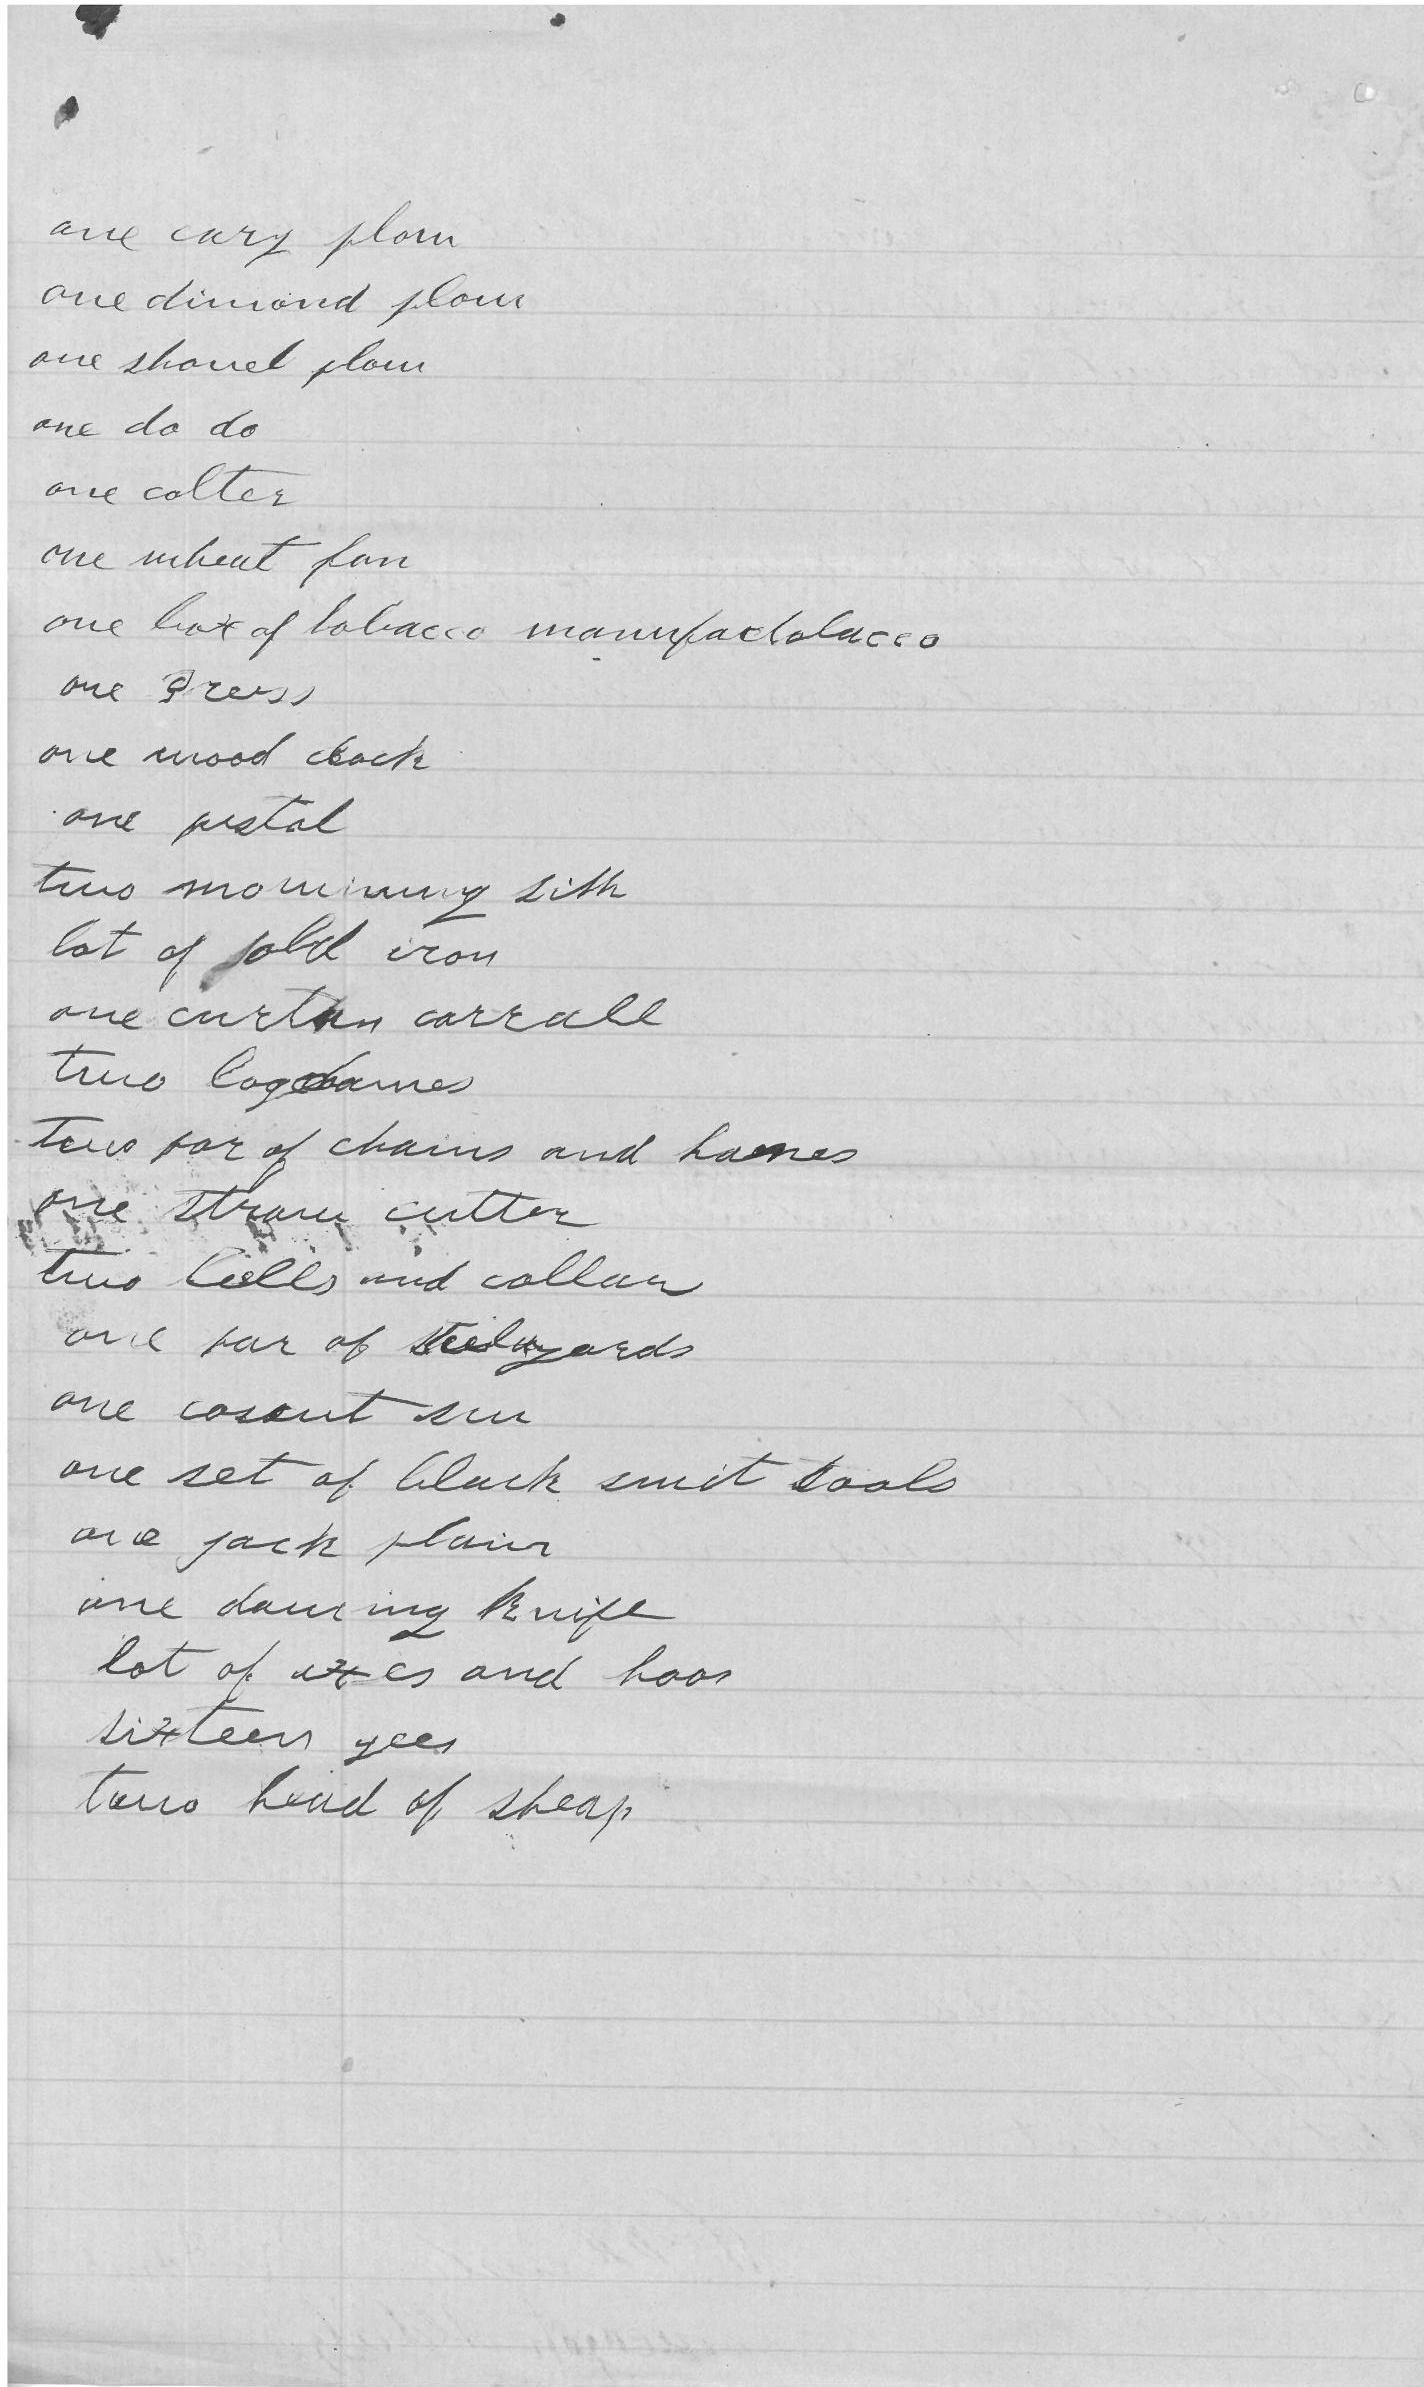 one cary plow
one dimond plow
one shovel plow
one do do
one colter
one wheat fan
one box of tobacco manufactolacco
one Press
one wood clock
one pistal
two mowining sith
lot of old iron
one curtin carrall
two log
two par of chains and hames
one straw cutter
two bells and collar
one par of steelyards
one coscut saw
one set of black smit tools
one jack plain
one dawing knife
lot of axes and hoos
sixteen gees
two head of sheap